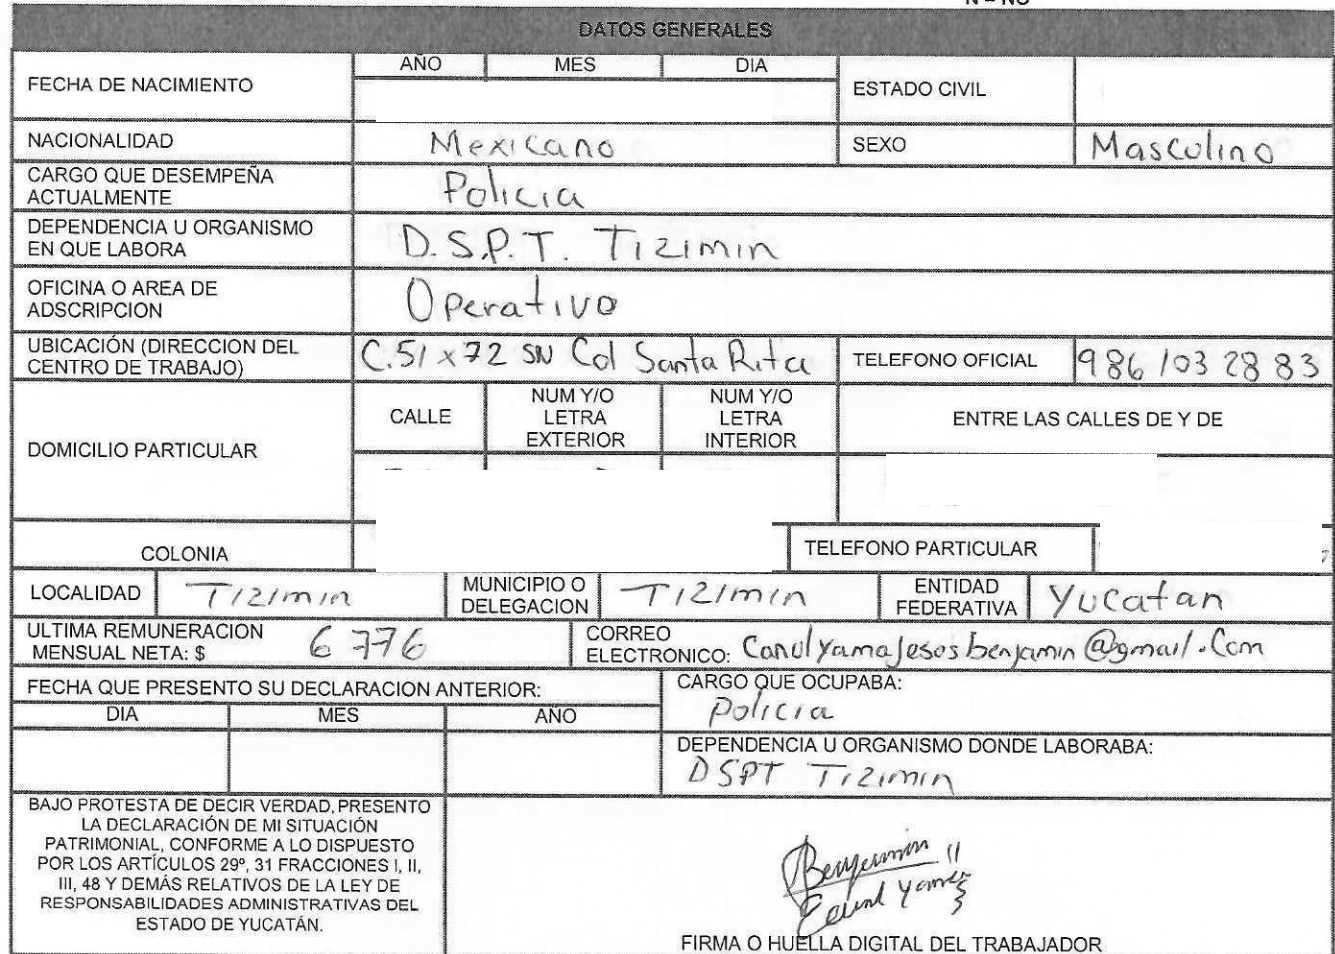 N = NO
DATOS GENERALES
FECHA DE NACIMIENTO
AÑO MES DIA
ESTADO CIVIL
NACIONALIDAD Mexicano SEXO Masculino
CARGO QUE DESEMPEÑA
ACTUALMENTE
Policia
DEPENDENCIA U ORGANISMO
EN QUE LABORA
D.S.P.T. Tizimin
OFICINA O AREA DE
ADSCRIPCION
Operativo
UBICACIÓN (DIRECCION DEL
CENTRO DE TRABAJO)
C.51 x 72 SN Col Santa Rita
TELEFONO OFICIAL 986 103 28 83
DOMICILIO PARTICULAR
CALLE
NUM Y/O
LETRA
EXTERIOR
NUM Y/O
LETRA
INTERIOR
ENTRE LAS CALLES DE Y DE
COLONIA
TELEFONO PARTICULAR
LOCALIDAD Tizimin
MUNICIPIO O
DELEGACION
Tizimin
ENTIDAD
FEDERATIVA
Yucatan
ULTIMA REMUNERACION
MENSUAL NETA: $ 6 776
CORREO
ELECTRONICO: Canulyamajesusbenjamin@gmail.Com
FECHA QUE PRESENTO SU DECLARACION ANTERIOR:
DIA MES AÑO
CARGO QUE OCUPABA:
Policia
DEPENDENCIA U ORGANISMO DONDE LABORABA:
DSPT Tizimin
BAJO PROTESTA DE DECIR VERDAD, PRESENTO
LA DECLARACIÓN DE MI SITUACIÓN
PATRIMONIAL, CONFORME A LO DISPUESTO
POR LOS ARTÍCULOS 29º, 31 FRACCIONES I, II,
III, 48 Y DEMÁS RELATIVOS DE LA LEY DE
RESPONSABILIDADES ADMINISTRATIVAS DEL
ESTADO DE YUCATÁN.
Benjamin
FIRMA O HUELLA DIGITAL DEL TRABAJADOR